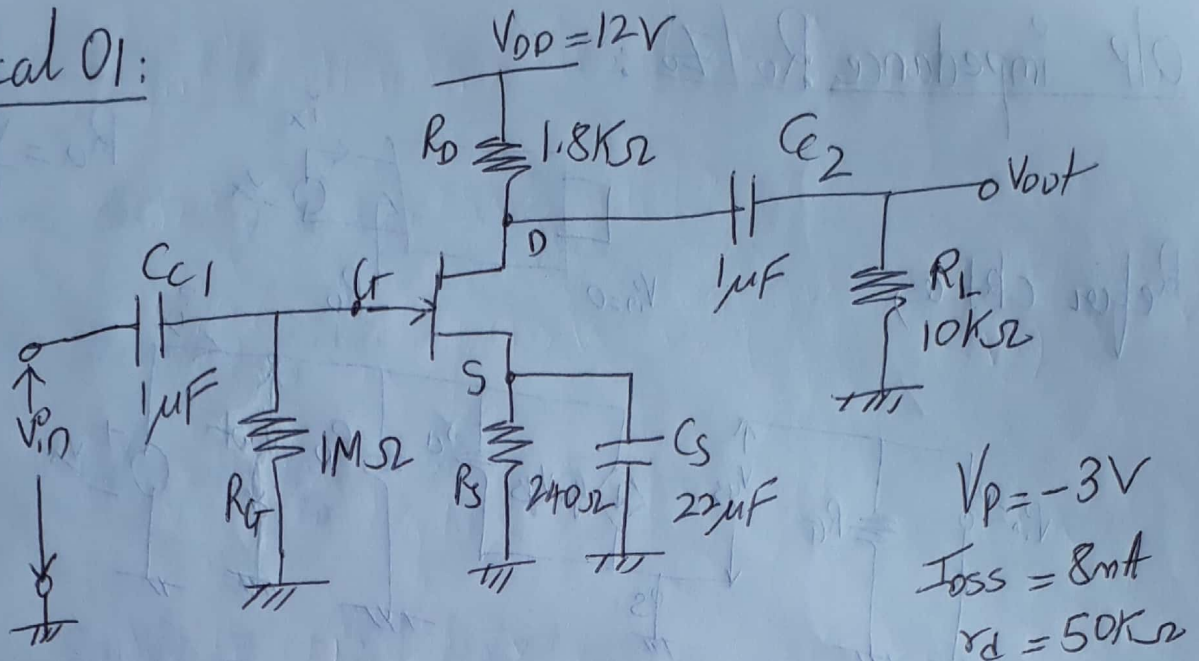 cal 01:
VDD = 12V
RD 1.8KΩ
CC2
Vout
D
1μF
RL
10KΩ
CC1
G
1μF
Vin
S
1MΩ
RG
RS 240Ω
CS
22μF
VP = -3V
IDSS = 8mA
rd = 50KΩ